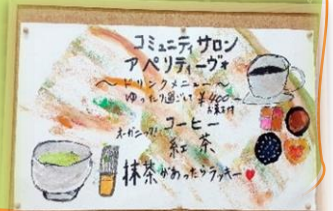 コミュニティサロン
アペリティーヴォ
〜ドリンクメニュー〜
ゆったり過ごして ¥400-
お菓子付
オーガニック! コーヒー
紅茶
抹茶があったらラッキー♥